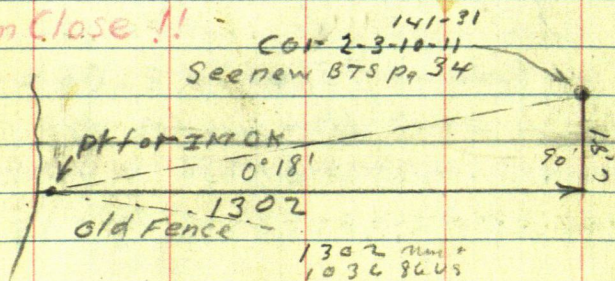 m Close !!
141-31
Cor 2-3-10-11
See new BTS pg 34
pt for IM OK
0°18'
90°
1302
old Fence
1302
1036